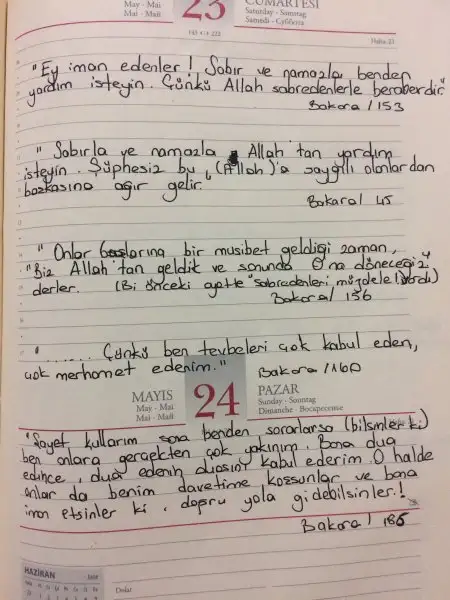 May - Mai
Mai - Май
23
CUMARTESİ
Saturday - Samstag
Samedi - Суббота
143 + 222
Hafta 21
"Ey iman edenler! Sabır ve namazla benden
yardım isteyin. Çünkü Allah sabredenlerle beraberdir"
Bakara / 153
" Sabırla ve namazla Allah'tan yardım
isteyin. Şüphesiz bu, (Allah)'a saygılı olanlardan
başkasına ağır gelir.
Bakara / 45
" Onlar başlarına bir musibet geldiği zaman,
"Biz Allah'tan geldik ve sonunda O'na döneceğiz"
derler. (Bi önceki ayette sabredenleri müjdele (vardı)
Bakara / 156
" ....... Çünkü ben tevbeleri çok kabul eden,
çok merhamet edenim."
Bakara / 160
MAYIS
May - Mai
Mai - Май
24
PAZAR
Sunday - Sonntag
Dimanche - Воскресенье
"Şayet kullarım sana benden sorarlarsa (bilsinler ki)
ben onlara gerçekten çok yakınım. Bana dua
edince, dua edenin duasını kabul ederim. O halde
onlar da benim davetime koşsunlar ve bana
iman etsinler ki, doğru yola gidebilsinler.!
Bakara / 186
HAZİRAN
Notlar